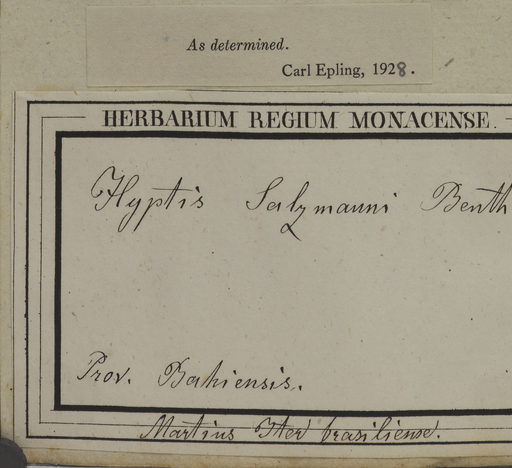 As determined.
Carl Epling, 1928.
HERBARIUM REGIUM MONACENSE.
Hyptis Salzmanni Benth
Prov. Bahiensis.
Martius Iter brasiliense.